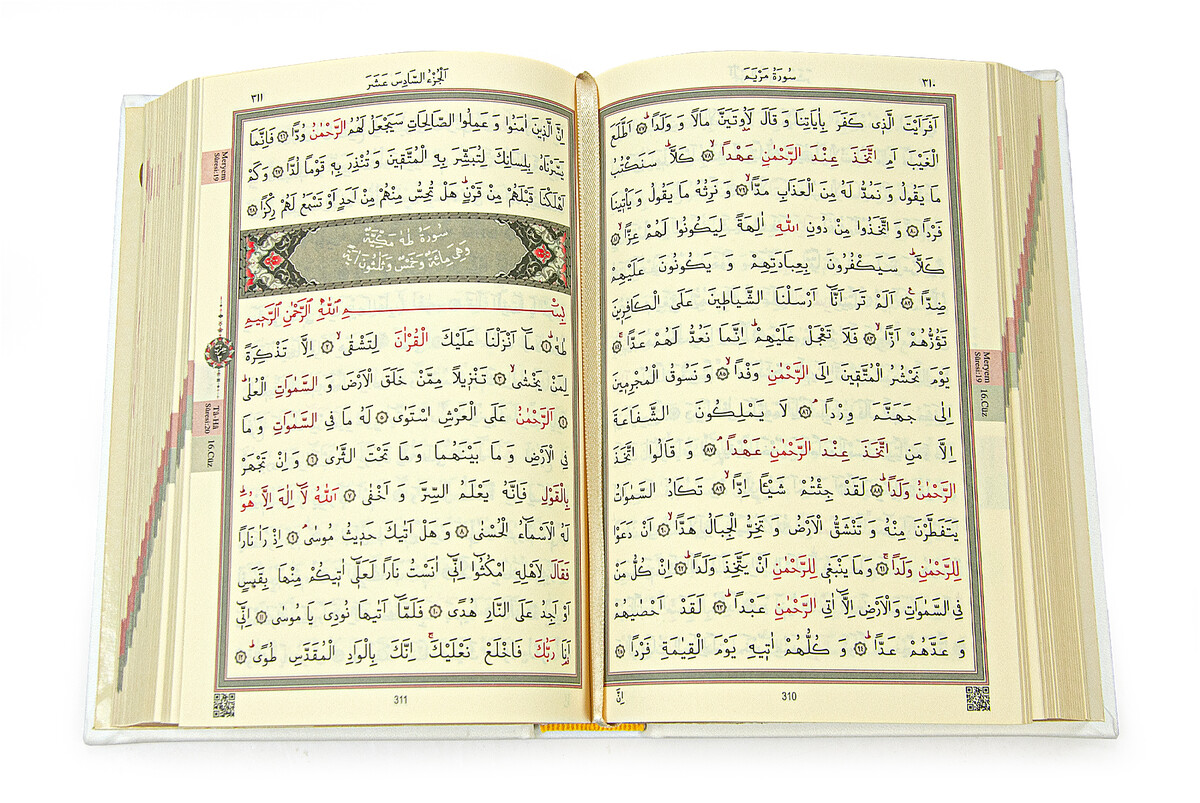 سُورَةُ مَرْيَمَ
٣١٠
اَفَرَاَيْتَ الَّذ۪ي كَفَرَ بِاٰيَاتِنَا وَ قَالَ لَاُو۫تَيَنَّ مَالًا وَ وَلَدًاۜ ﴿٧٧﴾ اَطَّلَعَ
الْغَيْبَ اَمِ اتَّخَذَ عِنْدَ الرَّحْمٰنِ عَهْدًاۙ ﴿٧٨﴾ كَلَّاۜ سَنَكْتُبُ
مَا يَقُولُ وَ نَمُدُّ لَهُ مِنَ الْعَذَابِ مَدًّاۙ ﴿٧٩﴾ وَ نَرِثُهُ مَا يَقُولُ وَ يَأْت۪ينَا
فَرْدًا ﴿٨٠﴾ وَ اتَّخَذُوا مِنْ دُونِ اللّٰهِ اٰلِهَةً لِيَكُونُوا لَهُمْ عِزًّاۙ ﴿٨١﴾
كَلَّاۜ سَيَكْفُرُونَ بِعِبَادَتِهِمْ وَ يَكُونُونَ عَلَيْهِمْ
ضِدًّا۟ ﴿٨٢﴾ اَلَمْ تَرَ اَنَّٓا اَرْسَلْنَا الشَّيَاط۪ينَ عَلَى الْكَافِر۪ينَ
تَؤُزُّهُمْ اَزًّاۙ ﴿٨٣﴾ فَلَا تَعْجَلْ عَلَيْهِمْۜ اِنَّمَا نَعُدُّ لَهُمْ عَدًّاۚ ﴿٨٤﴾
يَوْمَ نَحْشُرُ الْمُتَّق۪ينَ اِلَى الرَّحْمٰنِ وَفْدًاۙ ﴿٨٥﴾ وَ نَسُوقُ الْمُجْرِم۪ينَ
اِلٰى جَهَنَّمَ وِرْدًاۢ ﴿٨٦﴾ لَا يَمْلِكُونَ الشَّفَاعَةَ
اِلَّا مَنِ اتَّخَذَ عِنْدَ الرَّحْمٰنِ عَهْدًاۢ ﴿٨٧﴾ وَ قَالُوا اتَّخَذَ
الرَّحْمٰنُ وَلَدًاۜ ﴿٨٨﴾ لَقَدْ جِئْتُمْ شَيْـًٔا اِدًّاۙ ﴿٨٩﴾ تَكَادُ السَّمٰوَاتُ
يَتَفَطَّرْنَ مِنْهُ وَ تَنْشَقُّ الْاَرْضُ وَ تَخِرُّ الْجِبَالُ هَدًّاۙ ﴿٩٠﴾ اَنْ دَعَوْا
لِلرَّحْمٰنِ وَلَدًاۚ ﴿٩١﴾ وَمَا يَنْبَغ۪ي لِلرَّحْمٰنِ اَنْ يَتَّخِذَ وَلَدًاۜ ﴿٩٢﴾ اِنْ كُلُّ مَنْ
فِي السَّمٰوَاتِ وَالْاَرْضِ اِلَّٓا اٰتِي الرَّحْمٰنِ عَبْدًاۜ ﴿٩٣﴾ لَقَدْ اَحْصٰيهُمْ
وَ عَدَّهُمْ عَدًّاۜ ﴿٩٤﴾ وَ كُلُّهُمْ اٰت۪يهِ يَوْمَ الْقِيٰمَةِ فَرْدًا ﴿٩٥﴾
اِنَّ
310
Meryem
Sûresi:19
16.Cüz
اَلْجُزْءُ السَّادِسَ عَشَرَ
٣١١
اِنَّ الَّذ۪ينَ اٰمَنُوا وَ عَمِلُوا الصَّالِحَاتِ سَيَجْعَلُ لَهُمُ الرَّحْمٰنُ وُدًّا ﴿٩٦﴾ فَاِنَّمَا
يَسَّرْنَاهُ بِلِسَانِكَ لِتُبَشِّرَ بِهِ الْمُتَّق۪ينَ وَ تُنْذِرَ بِه۪ قَوْمًا لُدًّا ﴿٩٧﴾ وَ كَمْ
اَهْلَكْنَا قَبْلَهُمْ مِنْ قَرْنٍۜ هَلْ تُحِسُّ مِنْهُمْ مِنْ اَحَدٍ اَوْ تَسْمَعُ لَهُمْ رِكْزًا ﴿٩٨﴾
سُورَةُ طٰهٰ مَكِّيَّةٌ
وَهِيَ مِائَةٌ وَخَمْسٌ وَثَلٰثُونَ اٰيَةً
بِسْمِ اللّٰهِ الرَّحْمٰنِ الرَّح۪يمِ
طٰهٰۜ ﴿١﴾ مَٓا اَنْزَلْنَا عَلَيْكَ الْقُرْاٰنَ لِتَشْقٰىۙ ﴿٢﴾ اِلَّا تَذْكِرَةً
لِمَنْ يَخْشٰىۙ ﴿٣﴾ تَنْز۪يلًا مِمَّنْ خَلَقَ الْاَرْضَ وَ السَّمٰوَاتِ الْعُلٰىۜ
﴿٤﴾ اَلرَّحْمٰنُ عَلَى الْعَرْشِ اسْتَوٰى ﴿٥﴾ لَهُ مَا فِي السَّمٰوَاتِ وَ مَا
فِي الْاَرْضِ وَ مَا بَيْنَهُمَا وَ مَا تَحْتَ الثَّرٰى ﴿٦﴾ وَ اِنْ تَجْهَرْ
بِالْقَوْلِ فَاِنَّهُ يَعْلَمُ السِّرَّ وَ اَخْفٰى ﴿٧﴾ اَللّٰهُ لَٓا اِلٰهَ اِلَّا هُوَۜ
لَهُ الْاَسْمَٓاءُ الْحُسْنٰى ﴿٨﴾ وَ هَلْ اَتٰيكَ حَد۪يثُ مُوسٰىۢ ﴿٩﴾ اِذْ رَاٰ نَارًا
فَقَالَ لِاَهْلِهِ امْكُثُٓوا اِنّ۪ٓي اٰنَسْتُ نَارًا لَعَلّ۪ٓي اٰت۪يكُمْ مِنْهَا بِقَبَسٍ
اَوْ اَجِدُ عَلَى النَّارِ هُدًى ﴿١٠﴾ فَلَمَّٓا اَتٰيهَا نُودِيَ يَا مُوسٰى ﴿١١﴾ اِنّ۪ٓي
اَنَا۬ رَبُّكَ فَاخْلَعْ نَعْلَيْكَۚ اِنَّكَ بِالْوَادِ الْمُقَدَّسِ طُوًىۜ ﴿١٢﴾
311
Meryem
Sûresi:19
Tâ-Hâ
Sûresi:20
16.Cüz